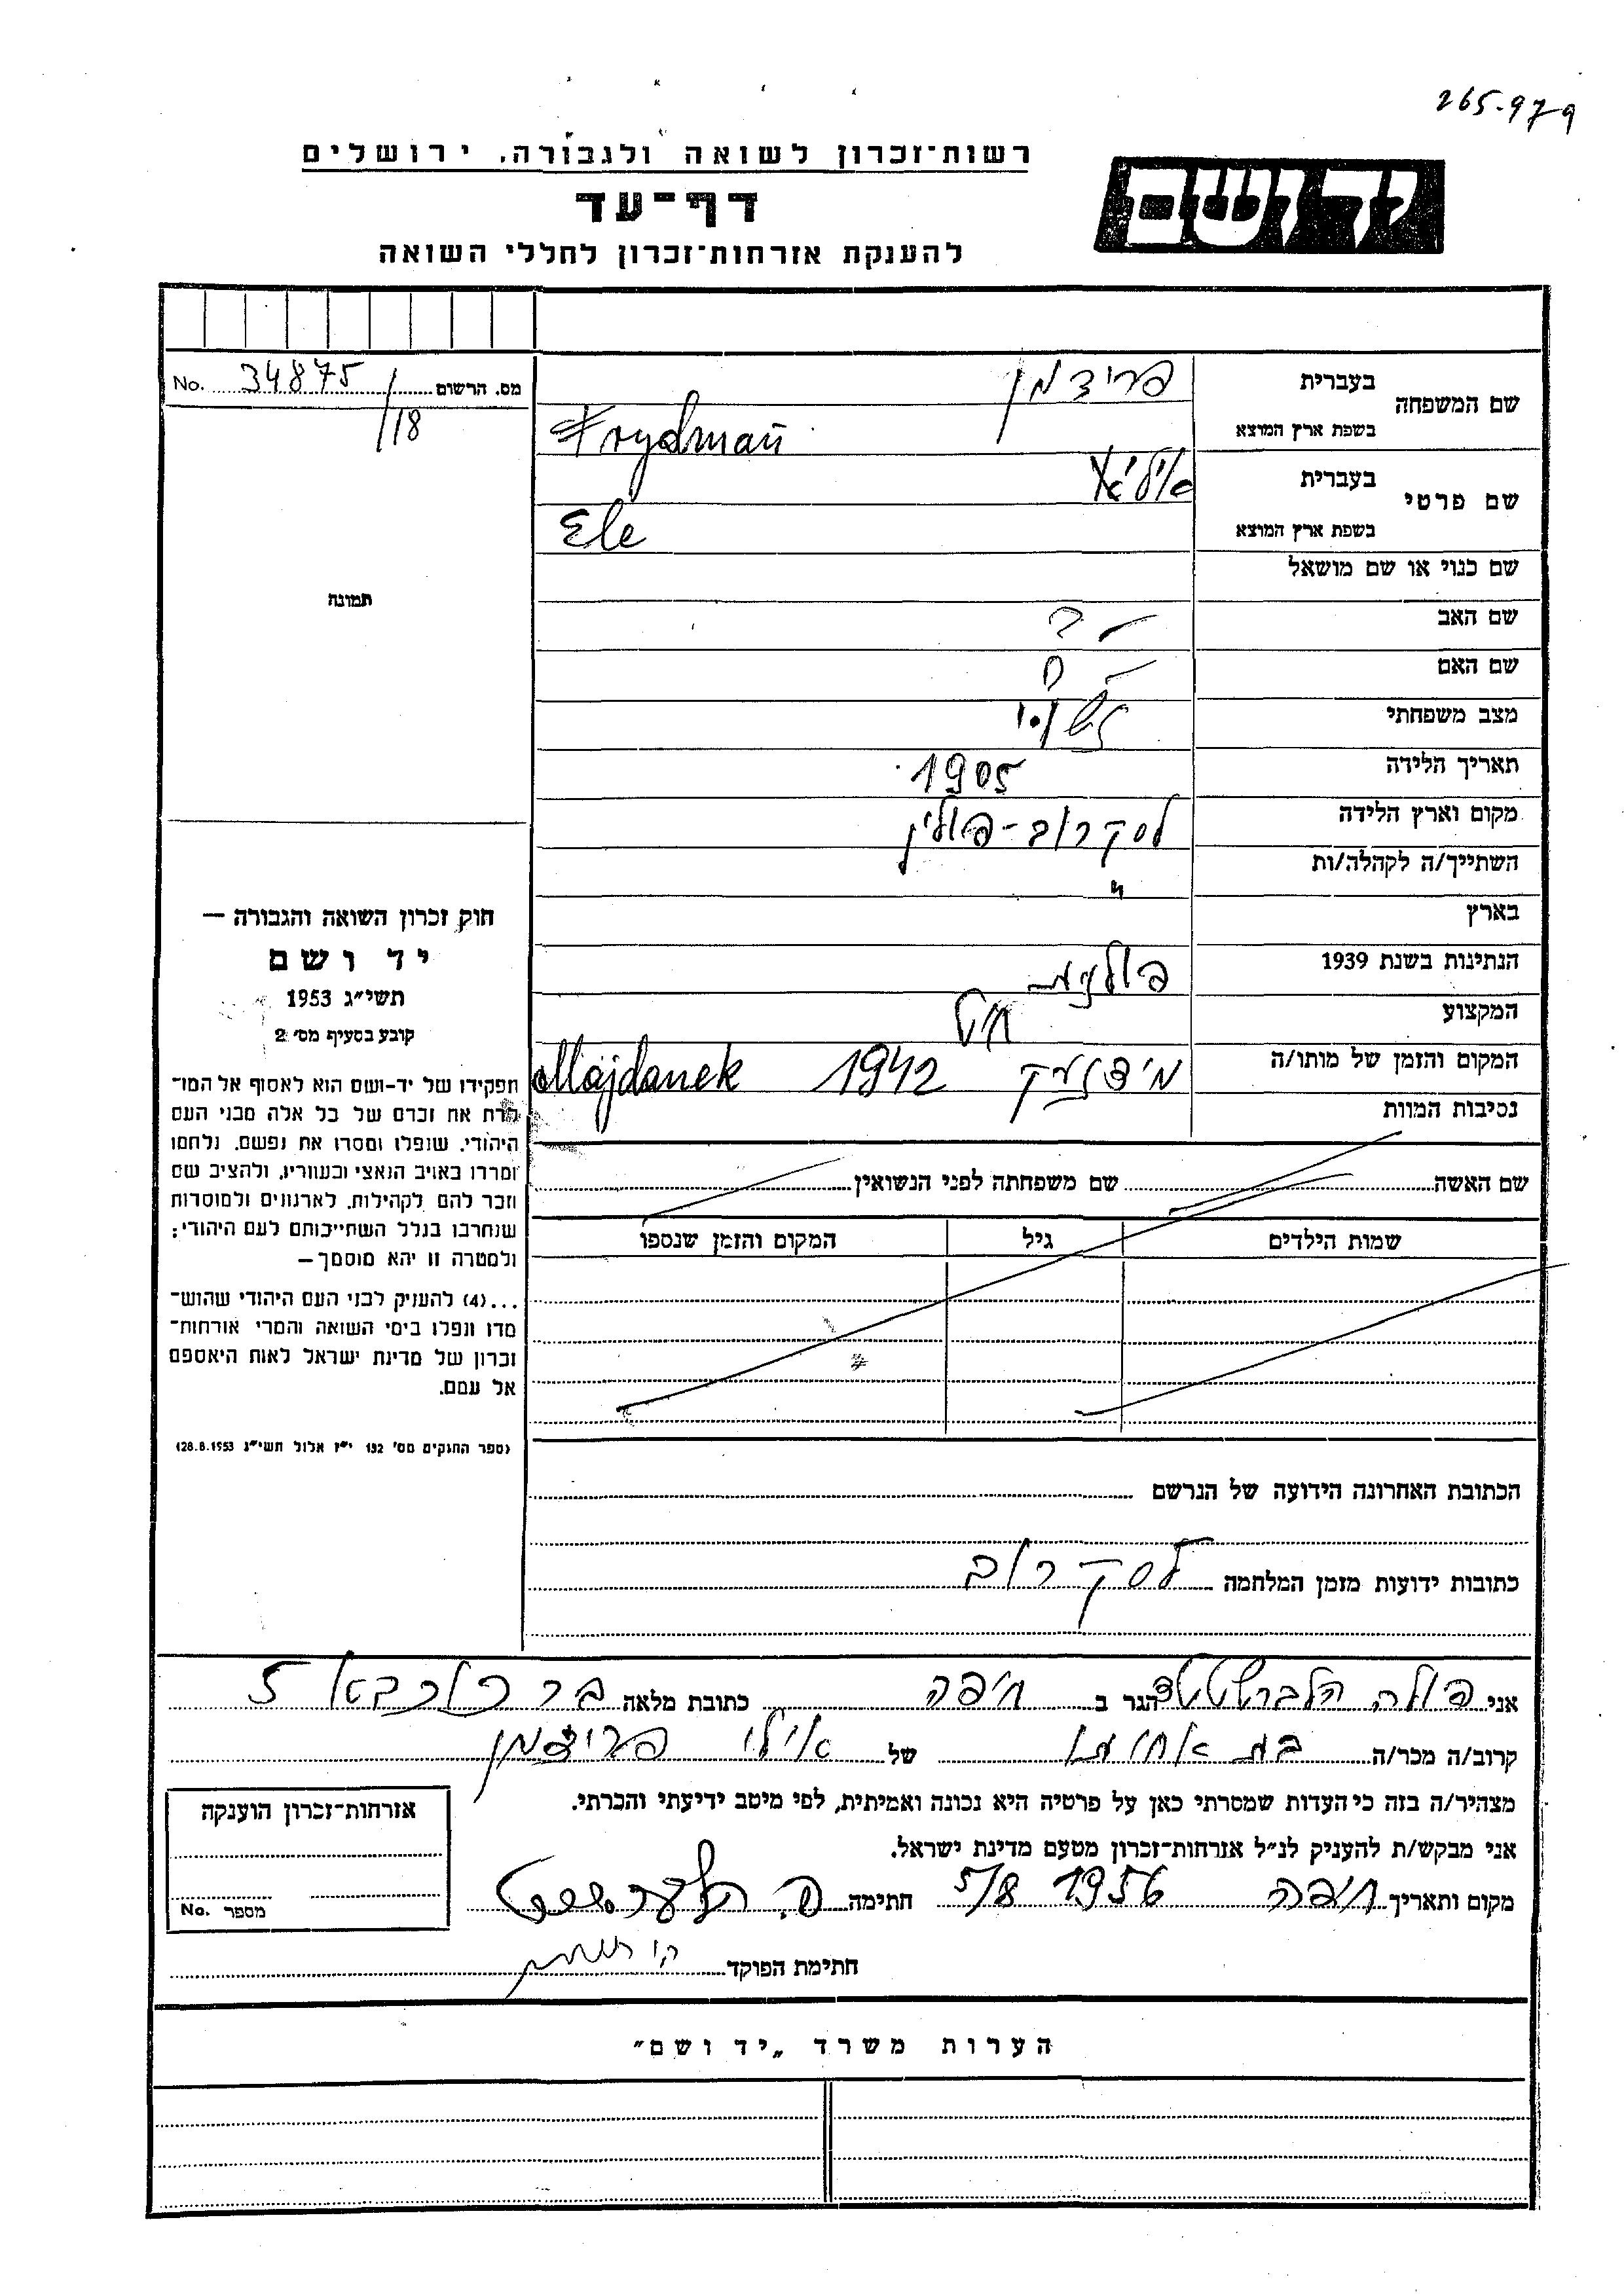 265-979
רשות־זכרון לשואה ולגבורה, ירושלים
דף־עד
להענקת אזרחות־זכרון לחללי השואה
יד ושם
מס. הרשום 34875/18 No.
שם המשפחה בעברית פרידמן
בשפת ארץ המוצא Frydman
שם פרטי בעברית
בשפת ארץ המוצא Ele
שם כנוי או שם מושאל
שם האב - ?
שם האם -
מצב משפחתי נשוי
תאריך הלידה 1905
מקום וארץ הלידה לסקרוב - פולין
השתייך/ה לקהלה/ות
בארץ "
הנתינות בשנת 1939 פולנית
המקצוע חיט
המקום והזמן של מותו/ה מידנק 1942 Majdanek
נסיבות המוות
תמונה
שם האשה שם משפחתה לפני הנשואין
שמות הילדים גיל המקום והזמן שנספו
חוק זכרון השואה והגבורה —
יד ושם
תשי״ג 1953
קובע בסעיף מס׳ 2
תפקידו של יד־ושם הוא לאסוף אל המו־
לדת את זכרם של כל אלה מבני העם
היהודי, שנפלו ומסרו את נפשם, נלחמו
ומרדו באויב הנאצי ובעוזריו, ולהציב שם
וזכר להם לקהילות, לארגונים ולמוסדות
שנחרבו בגלל השתייכותם לעם היהודי;
ולמטרה זו יהא מוסמך —
...(4) להעניק לבני העם היהודי שהוש־
מדו ונפלו בימי השואה והמרי אזרחות־
זכרון של מדינת ישראל לאות היאספם
אל עמם.
(ספר החוקים מס׳ 132 י״ז אלול תשי״ג 28.8.1953)
הכתובת האחרונה הידועה של הנרשם
כתובות ידועות מזמן המלחמה לסקרוב
אני פולה הלברשטט הגר ב חיפה כתובת מלאה בר כוכבא 5
קרוב/ה מכר/ה בת אחותו של אילי פרידמן
מצהיר/ה בזה כי העדות שמסרתי כאן על פרטיה היא נכונה ואמיתית, לפי מיטב ידיעתי והכרתי.
אני מבקש/ת להעניק לנ״ל אזרחות־זכרון מטעם מדינת ישראל.
מקום ותאריך חיפה 1956 5/8 חתימה פ. הלברשטט
חתימת הפוקד
אזרחות־זכרון הוענקה
מספר No.
הערות משרד „יד ושם"